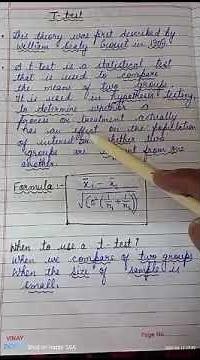 T-test
• This theory was first described by
William Sealy Gosset in 1908.
• A t-test is a statistical test
that is used to compare
the means of two groups.
It is used in hypothesis testing
to determine whether a
process or treatment actually
has an effect on the population
of interest or whether two
groups are different from one
another.
Formula:-
x̄₁ - x̄₂
√(s²(1/n₁ + 1/n₂))
When to use a t-test?
When we compare of two groups
When the size of sample is
small.
VINAY
Shot on